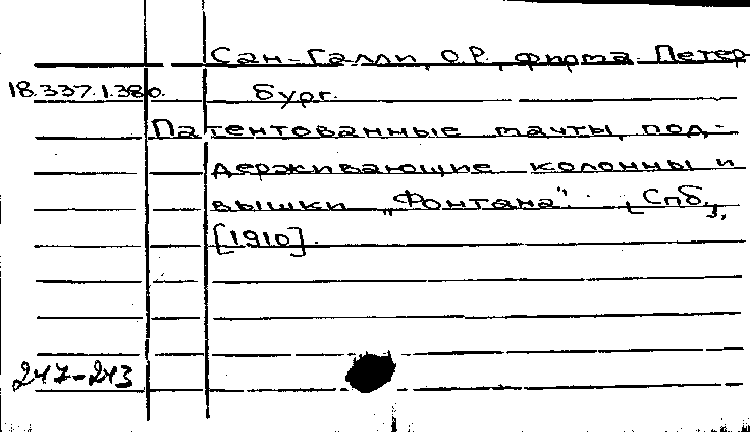 Сан-Галли, О.Р., фирма. Петер-
18.337.1.380. бург.
Патентованные мачты, под-
держивающие колонны и
вышки „Фонтана". [Спб.],
[1910].
247-243